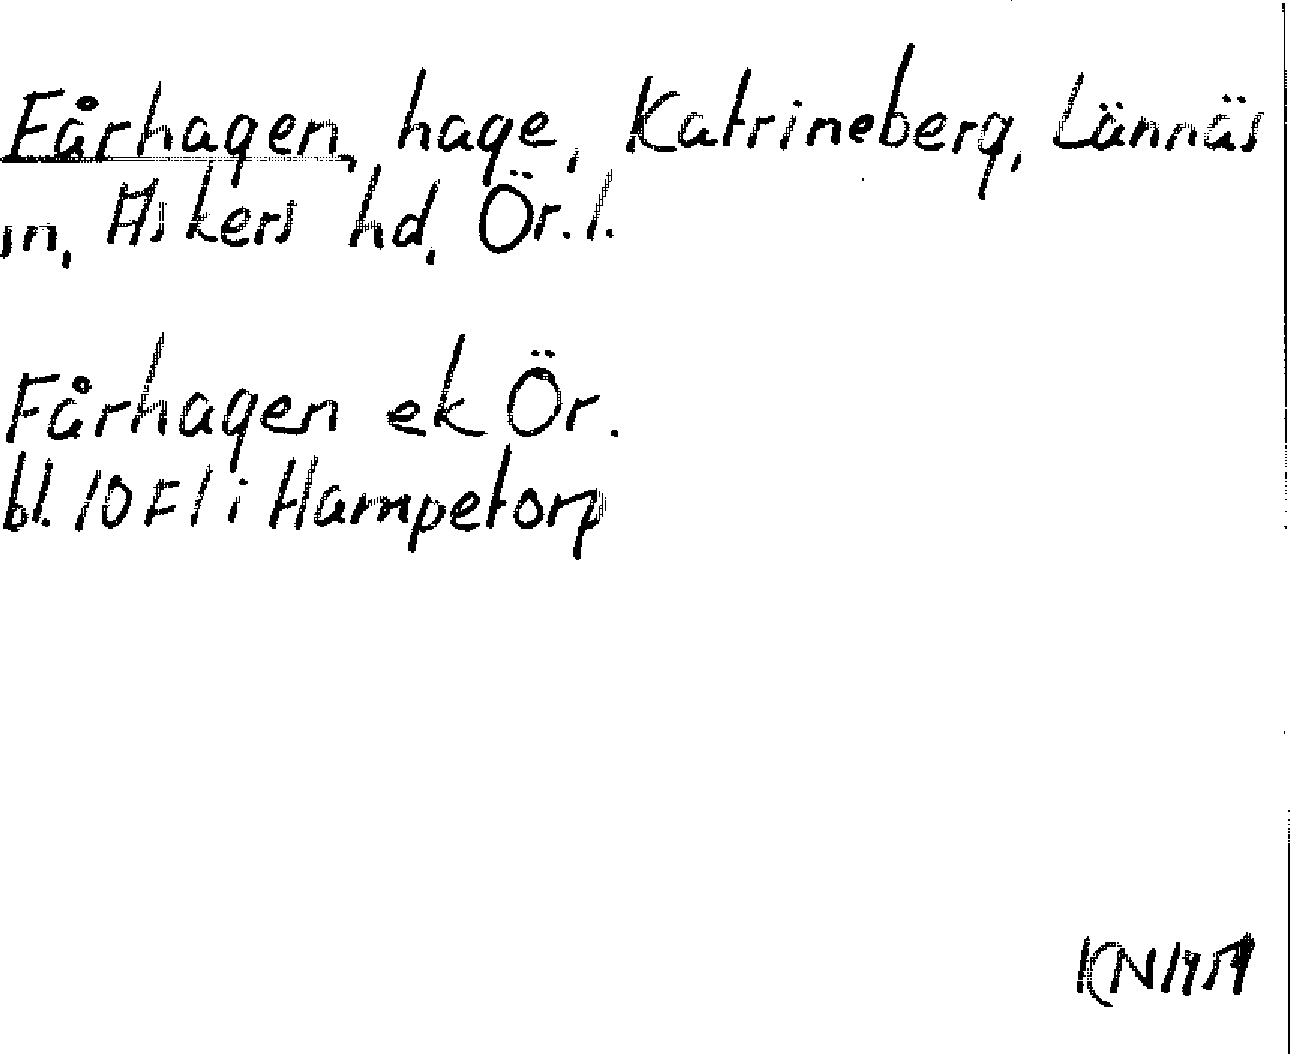 Fårhagen, hage, Katrineberg, Lännäs
sn, Askers hd, Ör. l.
Fårhagen ek Ör.
bl. 10 F 1 i Hampetorp